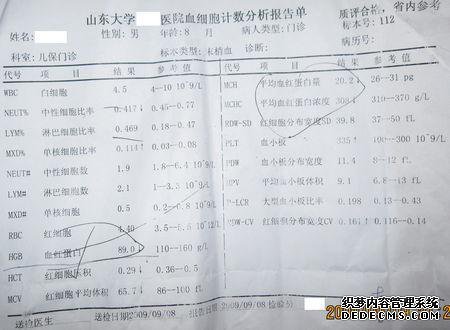 山东大学 医院血细胞计数分析报告单
质评合格，省内参考
姓名: 性别: 男 年龄: 8 月 病人类型: 门诊 标本号: 112
科室: 儿保门诊 标本类型: 末梢血 诊断: 病历号:
代号 项 目 结 果 参 考 值
WBC 白细胞 4.5 4-10 10^9/L
NEUT% 中性细胞比率 0.417↓ 0.45-0.77
LYM% 淋巴细胞比率 0.469 0.18-0.47
MXD% 单核细胞比率 0.114↑ 0.03-0.08
NEUT# 中性细胞数 1.9 1.8-6.4 10^9/L
LYM# 淋巴细胞数 2.1 1-3.3 10^9/L
MXD# 单核细胞数 0.5 10^9/L
RBC 红细胞 4.40 3.5-5.5 10^12/L
HGB 血红蛋白 89.0↓ 110-160 g/L
HCT 红细胞压积 0.29↓ 0.36-0.5
MCV 红细胞平均体积 65.7↓ 86-100 fL
代号 项 目 结 果 参 考 值
MCH 平均血红蛋白量 20.2↓ 26-31 pg
MCHC 平均血红蛋白浓度 308↓ 310-370 g/L
RDW-SD 红细胞分布宽度SD 39.8 37-50 fL
PLT 血小板 335↑ 100-300 10^9/L
PDW 血小板分布宽度 11.4 fL
MPV 平均血小板体积 9.1 fL
P-LCR 大型血小板比率 0.198 0.13-0.43
RDW-CV 红细胞分布宽度CV 0.161↑ 0.116-0.14
送检医生 送检日期2009/09/08 报告日期2009/09/08 检验员
织梦内容管理系统
DEDECMS.COM